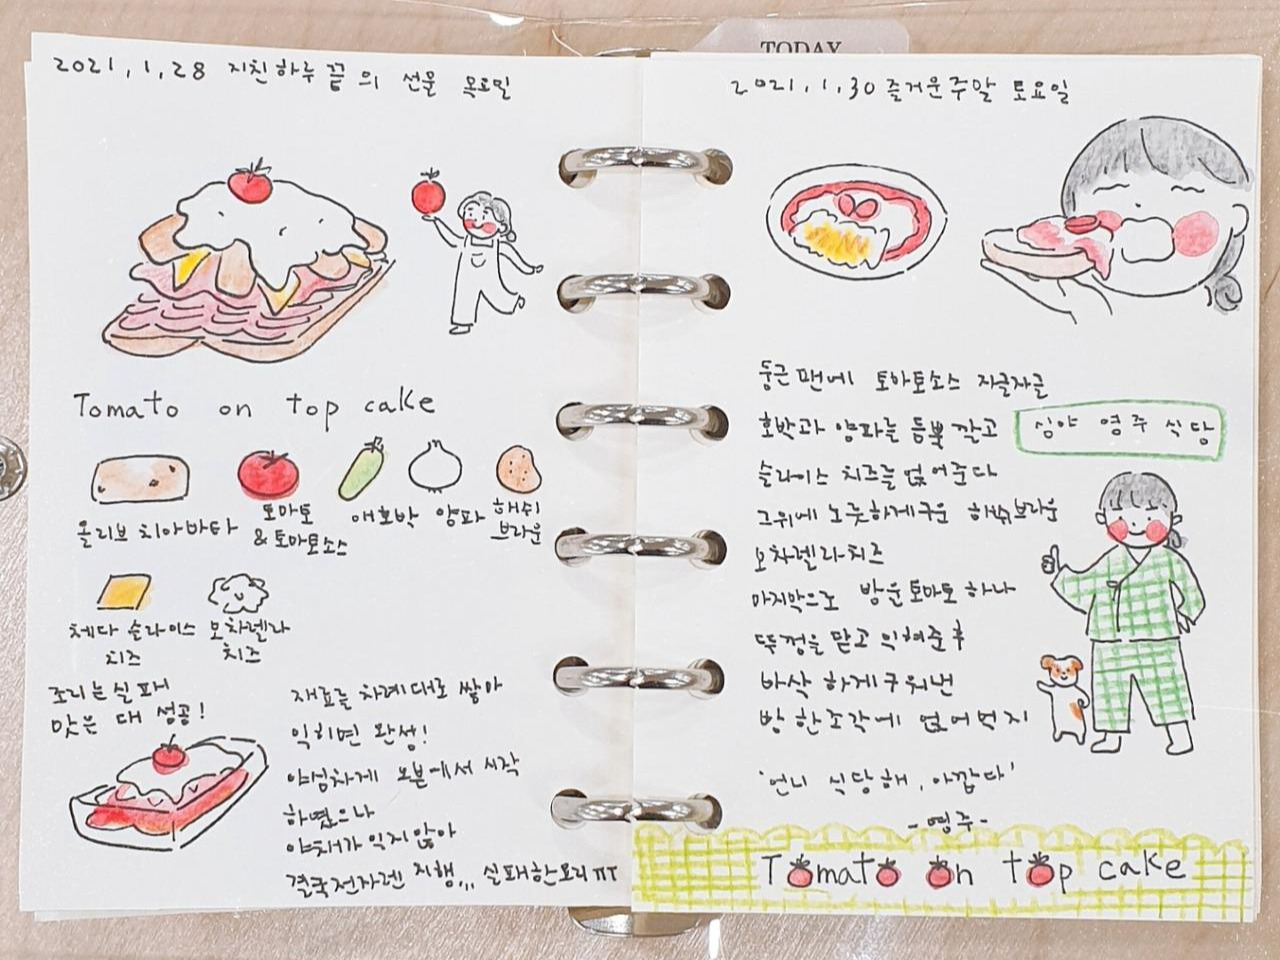 TODAY
2021.1.28 지친하루 끝의 선물 목요일
Tomato on top cake
올리브 치아바타
토마토
&토마토소스
애호박
양파
해쉬
브라운
체다 슬라이스
치즈
모차렐라
치즈
조리는 실패
맛은 대 성공!
재료를 차례대로 쌓아
익히면 완성!
야심차게 오븐에서 시작
하였으나
야채가 익지않아
결국전자렌 지행,,, 실패한요리ㅠㅠ
2021.1.30 즐거운주말 토요일
둥근팬에 토마토소스 자글자글
호박과 양파를 듬뿍깔고
심야 영주 식당
슬라이스 치즈를얹어준다
그위에 노릇하게구운 해쉬브라운
모차렐라치즈
마지막으로 방운토마토 하나
뚜껑을 닫고 익혀준후
바삭하게구워낸
빵한조각에 얹어먹지
'언니 식당해, 아깝다'
-영주-
Tomato on top cake